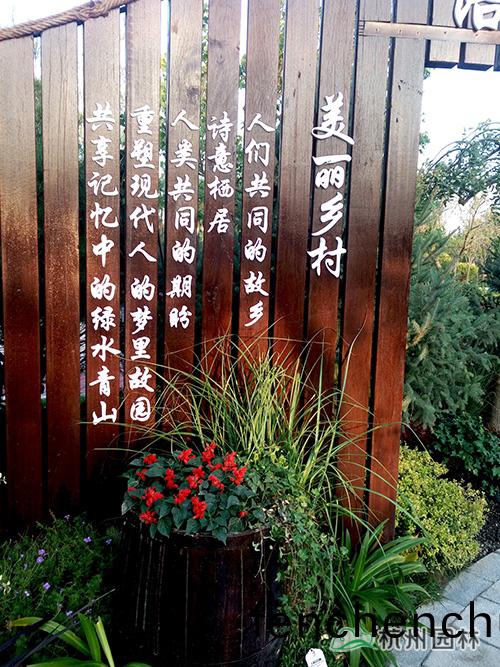 美丽乡村
人们共同的故乡
诗意栖居
人类共同的期盼
重塑现代人的梦里故园
共享记忆中的绿水青山
fenchench
杭州园林